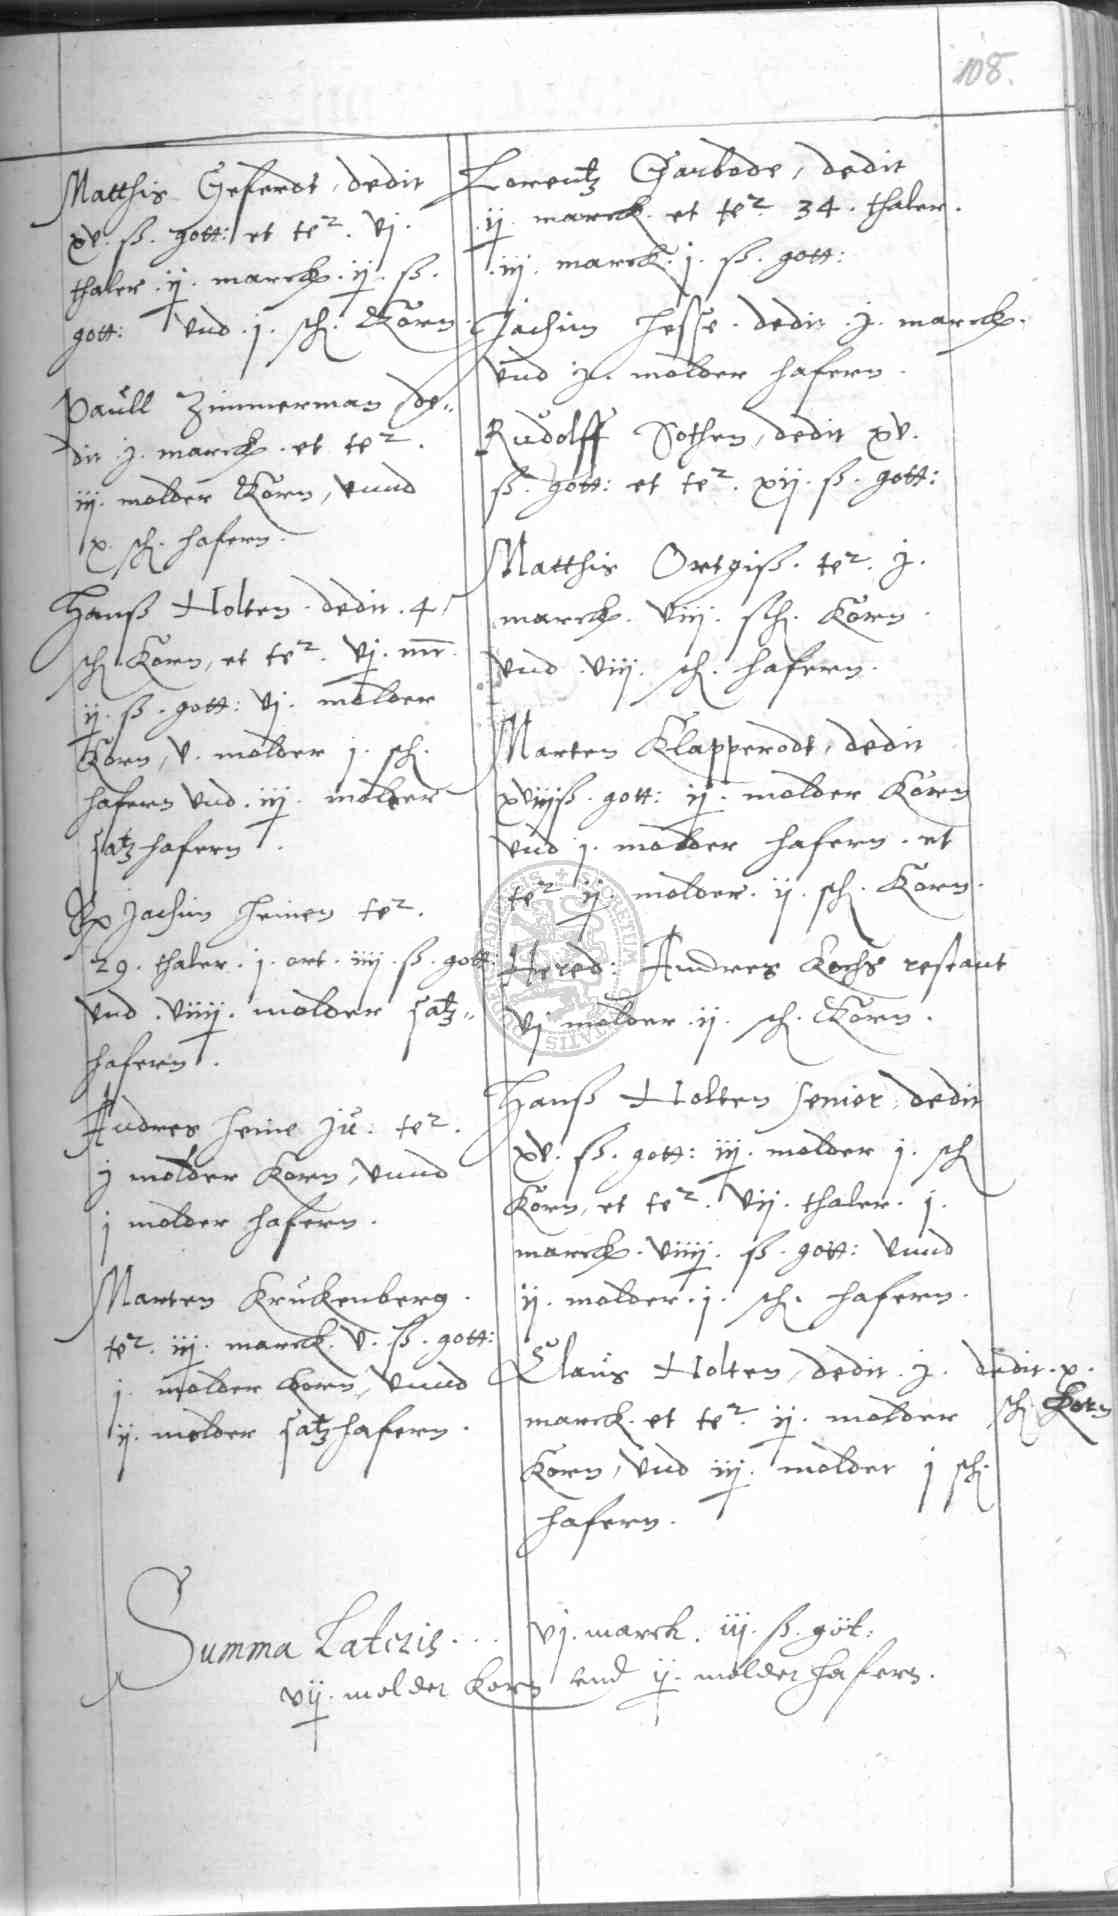 108.
Matthis Geferdt, dedit
xv. ß. gott: et te². vj.
thaler. ij. marck. ij. ß.
gott: vnd. j. sch. Korn.
Paull Zimmerman de-
dit. j. marck. et te².
iij. molder Korn, vnnd
x. sch. hafern.
Hanß Nolten. dedit. 4
sch Korn, et te². vj. mr.
ij. ß. gott: vj. molder
Korn, v. molder j. sch.
hafern vnd. iij. molder
satzhafern.
Jachim Heinen te².
29. thaler. j. ort. iiij. ß. gott:
vnd. viiij. molder satz-
hafern.
Andres Heine Ju: te².
j molder Korn, vnnd
j molder hafern.
Marten Kruckenberg.
te². iij. marck. v. ß. gott:
j. molder Korn, vnnd
ij. molder satzhafern.
Lorentz Garbode, dedit
ij. marck. et te². 34. thaler.
iij. marck. j. ß. gott:
Jachim Hesse. dedit. j. marck.
vnd j. molder hafern.
Rudolff Sothen, dedit xv.
ß. gott: et te². xij. ß. gott:
Matthis Ortgiß. te². j.
marck. viij. sch. Korn
vnd. viij. sch. hafern.
Marten Klapperodt, dedit
xviijß. gott: ij. molder Korn
vnd j. molder hafern. et
te² ij. molder. ij. sch. Korn.
Hered: Andres Kochs restant
vj molder. ij. sch. Korn.
Hanß Nolten senior, dedit
xv. ß. gott: iij. molder j. sch
Korn, et te². vij. thaler. j.
marck. viiij. ß. gott: vnnd
ij. molder. j. sch. hafern.
Claus Nolten, dedit. j. dedit. x.
marck. et te². ij. molder sch Korn
Korn, vnd iij. molder j sch.
hafern.
Summa Lateris... vj. marck. iij. ß. gót:
vij. molder Korn vnd ij. molder hafern.